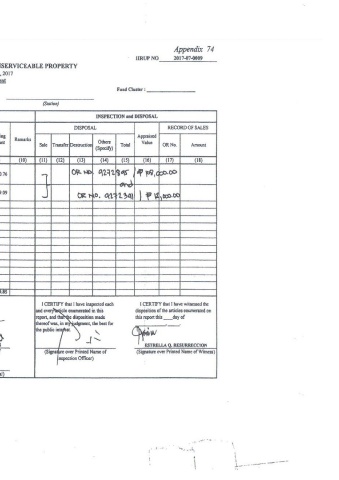 Appendix 74
IIRUP NO 2017-07-0009
NSERVICEABLE PROPERTY
, 2017
Fund Cluster :
(Station)
INSPECTION and DISPOSAL
DISPOSAL
RECORD OF SALES
Remarks
Sale Transfer Destruction Others (Specify) Total
Appraised Value
OR No. Amount
(10) (11) (12) (13) (14) (15) (16) (17) (18)
OR NO. 9272895
and
OR NO.
I CERTIFY that I have inspected each
and every article enumerated in this
report, and that the disposition made
thereof was, in my judgment, the best for
the public interest.
(Signature over Printed Name of
Inspection Officer)
I CERTIFY that I have witnessed the
disposition of the articles enumerated on
this report this ____day of
ESTRELLA Q. RESURRECCION
(Signature over Printed Name of Witness)